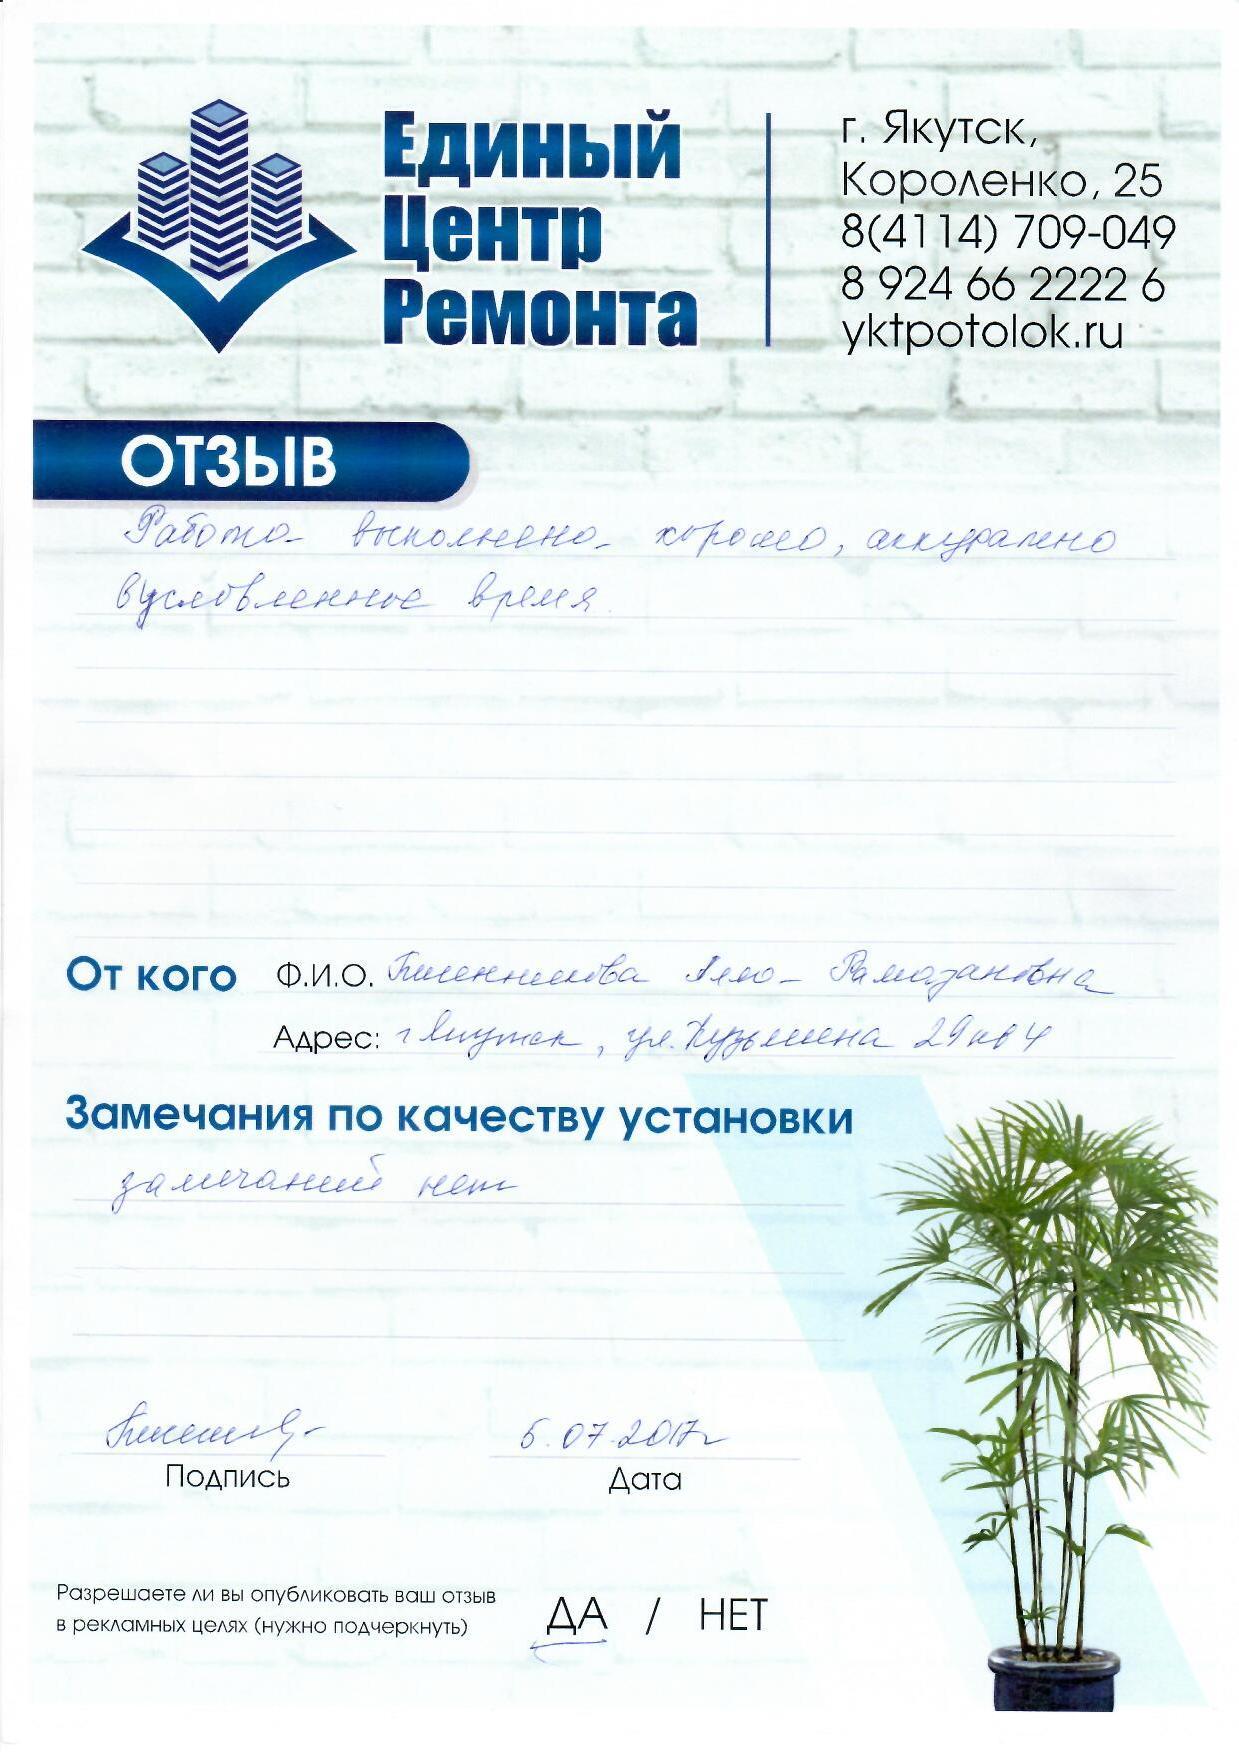 Единый
Центр
Ремонта
г. Якутск,
Короленко, 25
8(4114) 709-049
8 924 66 2222 6
yktpotolok.ru
ОТЗЫВ
Работа выполнена хорошо, аккуратно
в условленное время.
От кого Ф.И.О. Пшенникова Алла Рамазановна
Адрес: г Якутск, ул. Кузьмина 29 кв 4
Замечания по качеству установки
замечаний нет
5.07.2017г
Подпись Дата
Разрешаете ли вы опубликовать ваш отзыв
в рекламных целях (нужно подчеркнуть) ДА / НЕТ